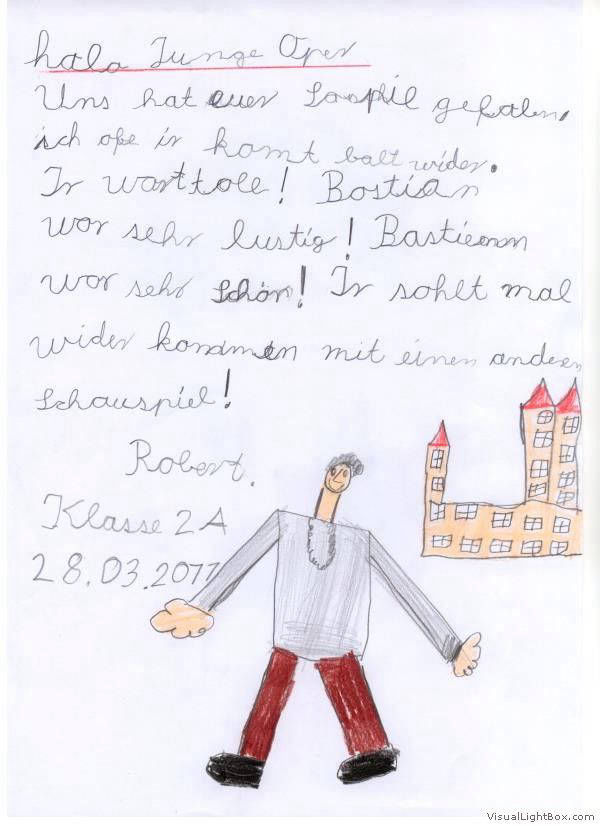 halo Junge Oper
Uns hat euer Saspiel gefalen.
ich ofe ir komt balt wider.
Ir wart tole! Bostian
war sehr lustig! Bastienn
war sehr schön! Ir sohlt mal
wider kommen mit einen anderen
Schauspiel!
Robert.
Klasse 2A
28.03.2011
VisualLightBox.com